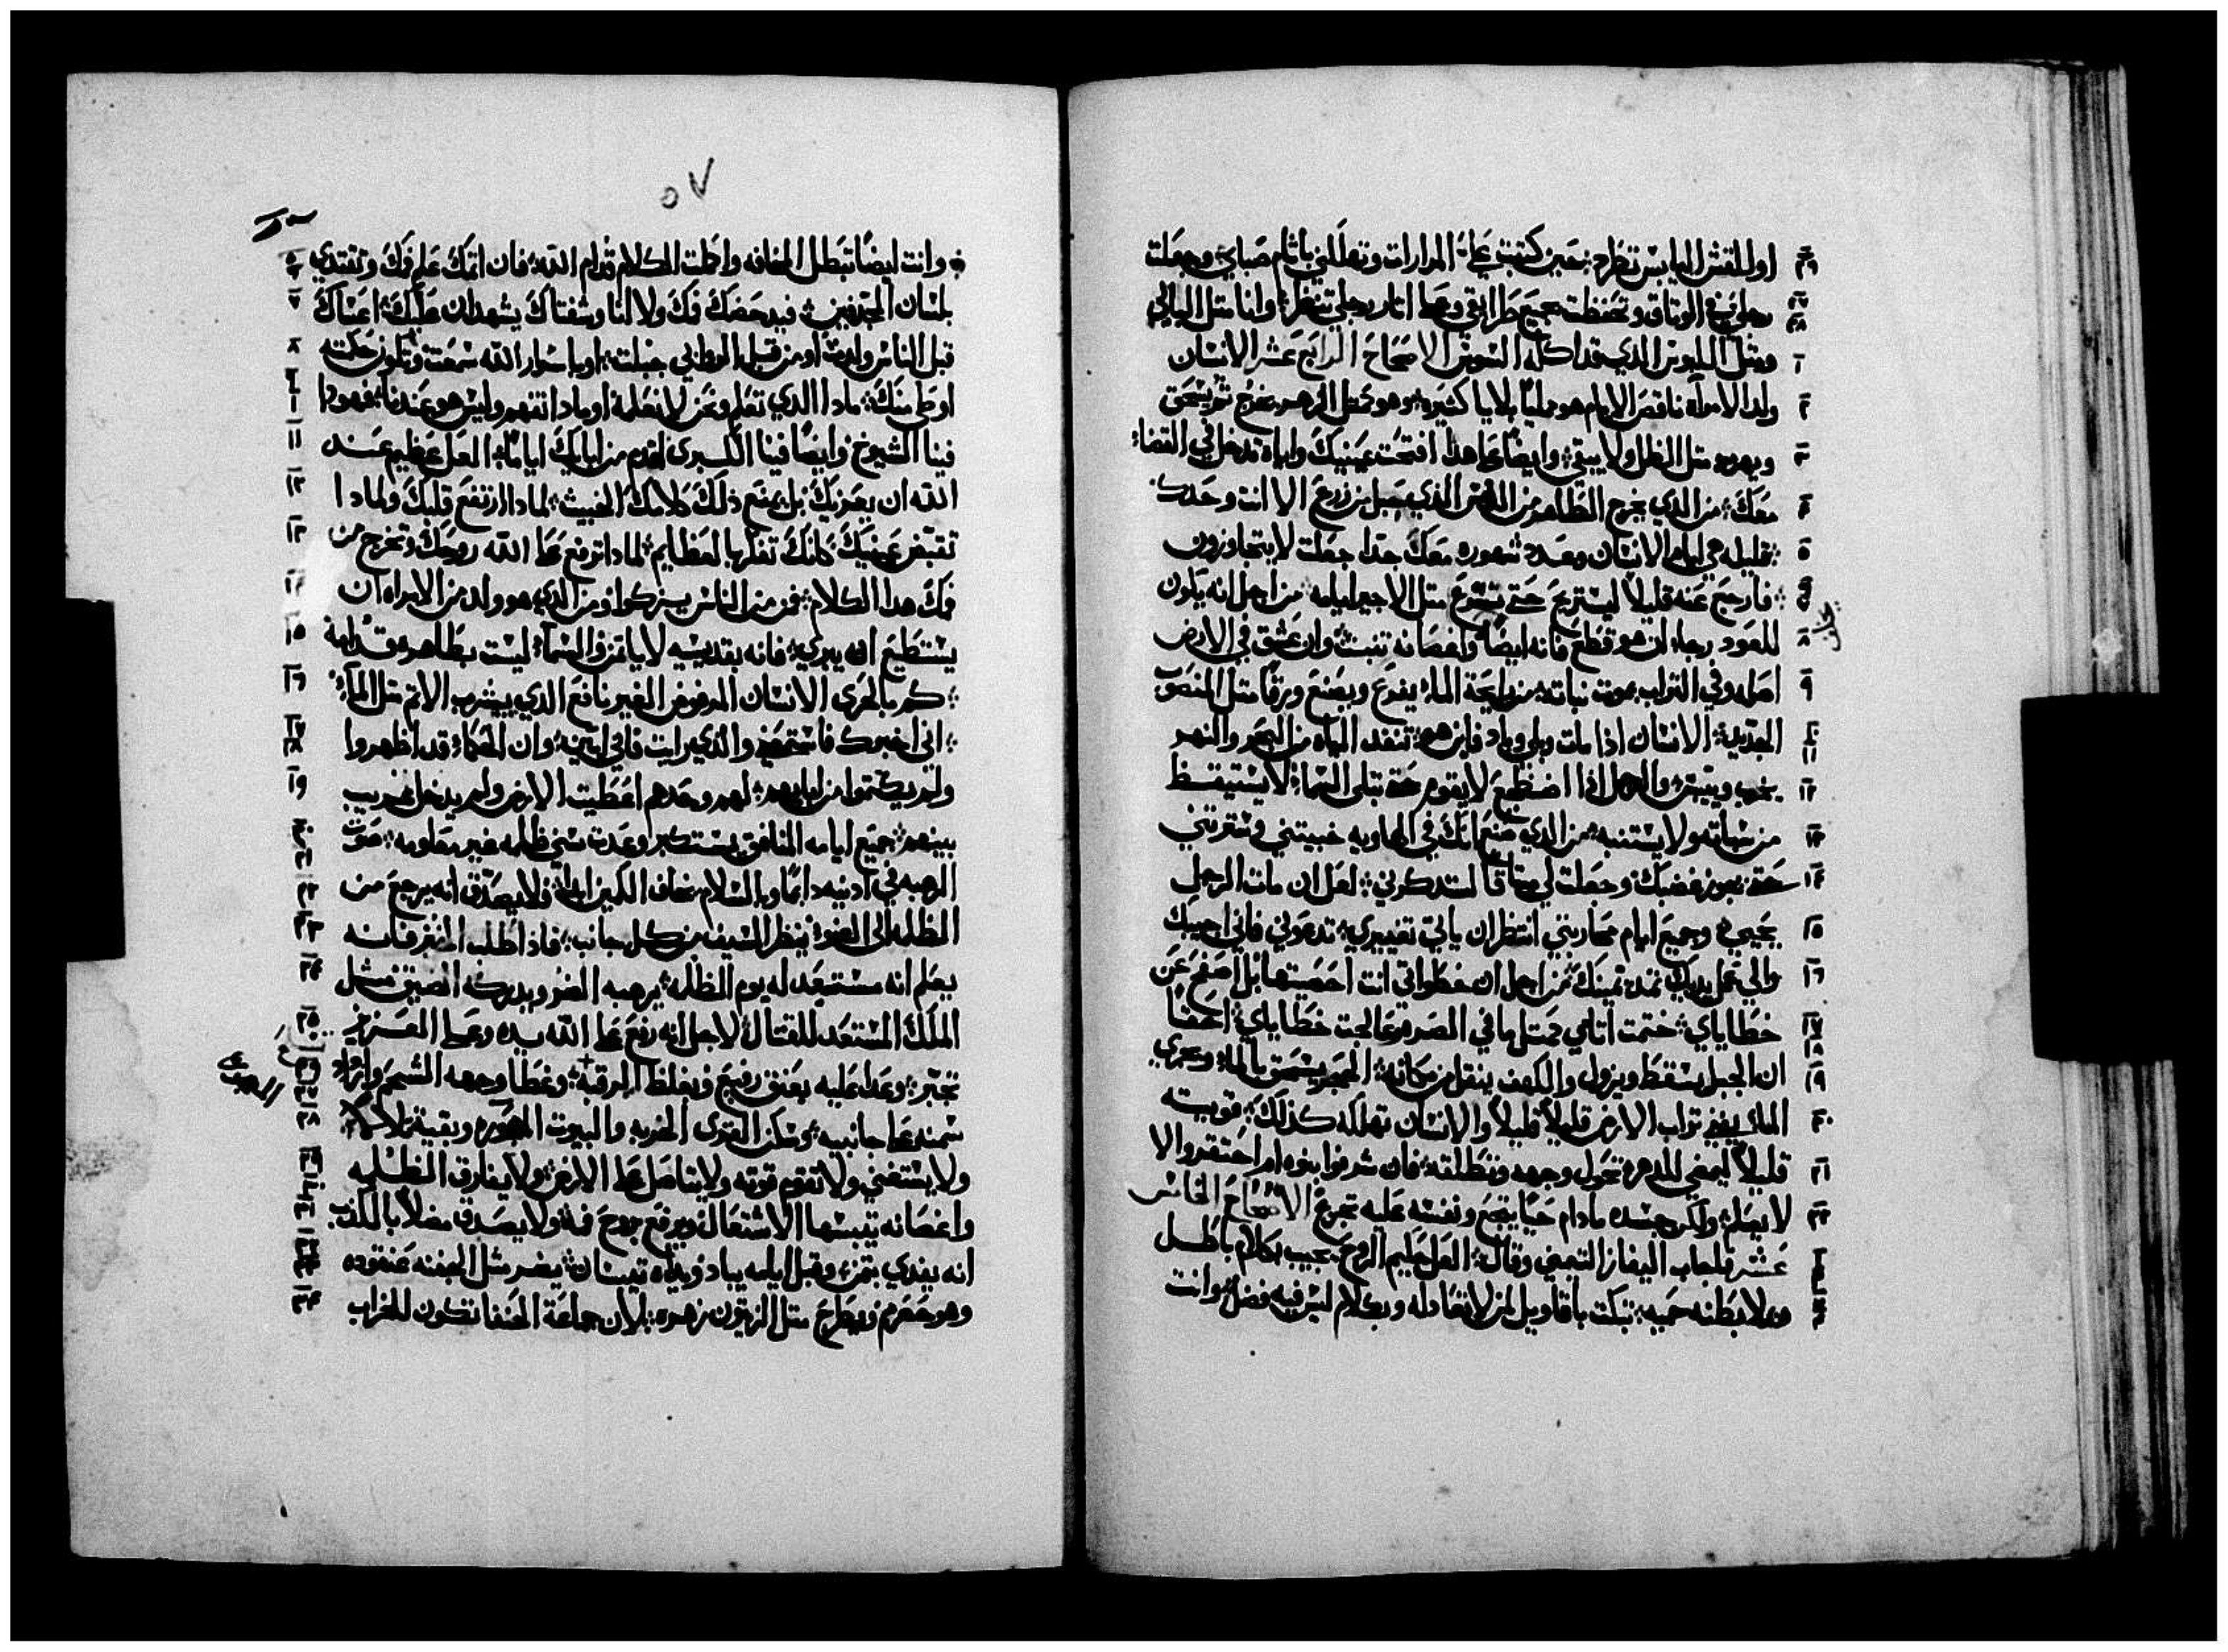 او للقش اليابس تطرد: حين كتبت عليّ المرارات وتهللني باثام صباي: وجعلت
رجليَّ في الوثاق وتحفظت بجميع طرايقي وعلى اثار رجلي تنظر: وانا مثل البالي
ومثل الملبوس الذي قد اكله السوس الاصحاح الرابع عشر الانسان
ولد الامرأه ناقص الايام هو ملياً بلايا كثيره: وهو مثل الزهر يخرج ثم ينسحق
ويهرب مثل الظل ولا يبقي: وايضاً على هذا افتحت عينيك واياه تدخل في القضاء
معك: من الذي يخرج الطاهر من الدنس الذي حبل من زرع الا انت وحدك
: قليله هي ايام الانسان وعدد شهوره معك حداً جعلت لا يتجاوزون
: فارجع عنه قليلاً ليستريح حتى تسرع مثل الاجير ايامه من اجل انه يكون
للعود رجاء ان هو قطع فانه ايضاً واغصانه تنبت: وان عتق في الارض
اصله وفي التراب يموت نباته: من رايحة الماء يفرع ويصنع ورقاً مثل المنصوب
الجديد: الانسان اذا مات وبلي وباد فاين هو: تنفد المياه من البحر والنهر
يخرب وييبس: والرجل اذا اضطجع لا يقوم حتى تبلى السماء: لا يستيقظ
من سباته ولا يستنبه: من الذي يمنع انك في الهاويه خبيتني وسترتني
حتى يجوز غضبك: وجعلت لي ميثاقاً لتذكرني: لعل ان مات الرجل
يحيي: وجميع ايام محاربتي انتظر ان ياتي تغييري: تدعوني فاني اجيبك
والي عمل يديك تمد يمينك: من اجل ان خطواتي انت احصيتها بل اصفح عن
خطاياي: ختمت اثامي كمثل ما في الصره وعالجت خطاياي: احقاً
ان الجبل يسقط ويزول والكهف ينقل من مكانه: الحجر يسحق بالماء: وبجري
الماء يفني تراب الارض قليلاً قليلاً والانسان تهلكه كذلك: قويته
قليلاً ليمضي للدهر: تحول وجهه وتطلقه: فان شرفوا بنوه ام احتقروا لا
لا يعلم: ولكن جسده مادام حياً يتجع ونفسه عليه تجزع الاصحاح الخامس
عشر فاجاب اليفاز التيمني وقال: العل حليم الروح يجيب بكلام باطل
ويملا بطنه حميه: تبكت باقاويل لمن لا تعادله وبكلام ليس فيه فضل: وانت
٥٧
: وانت ايضاً تبطل المخافه واكملت الكلام قدام الله: فان اثمك علم فمك وتقتدي
بلسان المجدفين: فيدحضك فمك ولا انا وشفتاك يشهدان عليك: اعساك
قبل الناس ولدت: او من قبل الروابي جبلت: او باسرار الله سمعت: وتكون حكمته
اوطى منك: ماذا الذي تعلم ونحن لا نعلمه: او ماذا تفهم وليس هو عندنا: فهوذا
فينا الشيوخ: وايضاً فينا الكبري اقدم من ابايك اياماً: العل عظيم عند
الله ان يعزيك بل يمنع ذلك كلامك الخبيث: لماذا ارتفع قلبك ولماذا
تقبض عينيك كانك تفكر بالعظايم: لماذا ترفع على الله روحك وتخرج من
فمك هذا الكلام: فمن من الناس يزكوا: ومن الذي هو ولد من الامراه ان
يستطيع ان يبري: فانه بقديسيه لا يامن: والسماء ليست بطاهره قدامه
: كم بالحرى الانسان المرفوض الغير نافع الذي يشرب الاثم مثل الماء
: اني اخبرك فاستمعني والذي رايت فاني ابينه: وان الحكماء قد اظهروا
ولم يكتموا من ابايهم: لهم وحدهم اعطيت الارض ولم يدخل غريب
بينهم: جميع ايامه المنافق يستكبر وعدت سني ظلمه غير معلومه: صوت
الرهبه في اذنيه دايماً وبالسلام يخاف الكمين ابداً: فلا يصدق انه يرجع من
الظلمه الى الضو: ينظر السيف من كل جانب: فاذا طلب الخبز فانه
يعلم انه مستعد له يوم الظلمه: يرهبه الضر ويدركه الضيق مثل
الملك المستعد للقتال: لاجل انه رفع على الله يده وعلى العزيز
تجبر: وعدا عليه بعنق رفيع وبغلظ الرقبة: وغطا وجهه الشحم واراد
سمنه على جانبيه: وسكن القرى الخربه والبيوت المهجوره وبقية تلالاً
ولا يستغني ولا تقوم قوته ولا يتاصل على الارض: ولا يفارق الظلمه
واغصانه تيبسها الاشتعال ويرفع بروح فمه: ولا يصدق مضلاً بالكذب
انه يفدي بثمن: وقبل ايامه يباد ويداه تيبسان: يضر مثل الجفنه عنقوده
وهو حصرم: ويطرح مثل الزيتون زهره: لان جماعة الحنفا تكون للخراب